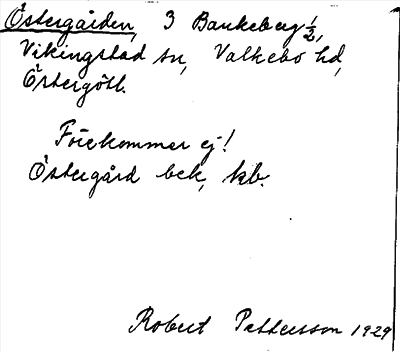 Östergården, 3 Bankeberg 1/2,
Vikingstad sn, Valkebo hd,
Östergötl.
Förekommer ej!
Östergård bek, kb.
Robert Pettersson 1929